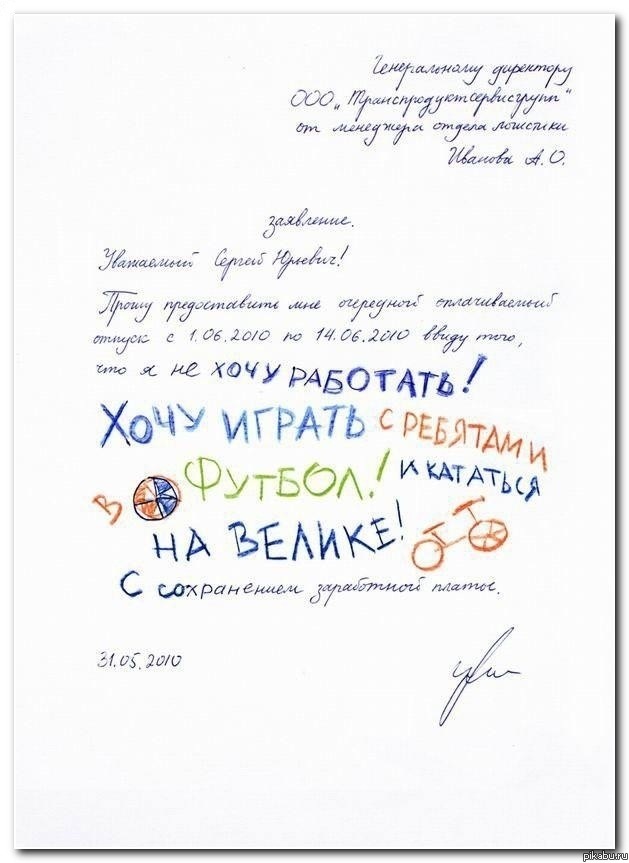 Генеральному директору
ООО „Транспродуктсервисгрупп"
от менеджера отдела логистики
Иванова А.О.
заявление.
Уважаемый Сергей Юрьевич!
Прошу предоставить мне очередной оплачиваемый
отпуск с 1.06.2010 по 14.06.2010 ввиду того,
что я не хочу РАБОТАТЬ!
ХОЧУ ИГРАТЬ С РЕБЯТАМИ
В ФУТБОЛ! И КАТАТЬСЯ
НА ВЕЛИКЕ!
С сохранением заработной платы.
31.05.2010
pikabu.ru